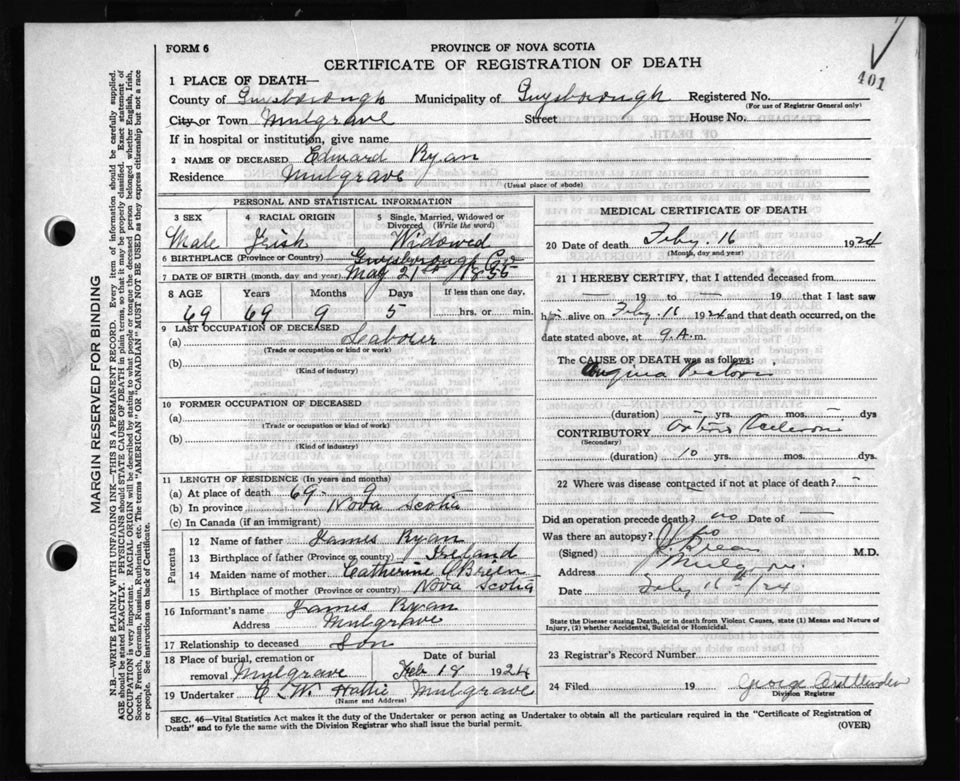 401
FORM 6
PROVINCE OF NOVA SCOTIA
CERTIFICATE OF REGISTRATION OF DEATH
1 PLACE OF DEATH—
County of Guysborough Municipality of Guysborough Registered No.
(For use of Registrar General only)
City or Town Mulgrave Street House No.
If in hospital or institution, give name
2 NAME OF DECEASED Edward Ryan
Residence Mulgrave
(Usual place of abode)
PERSONAL AND STATISTICAL INFORMATION
3 SEX 4 RACIAL ORIGIN 5 Single, Married, Widowed or Divorced (Write the word)
Male Irish Widowed
6 BIRTHPLACE (Province or Country) Guysborough Co
7 DATE OF BIRTH (month, day, and year) May 21st 1855
8 AGE Years Months Days If less than one day,
69 69 9 5 hrs. or min.
9 LAST OCCUPATION OF DECEASED
(a) Labour
(Trade or occupation or kind or work)
(b)
(Kind of industry)
10 FORMER OCCUPATION OF DECEASED
(a)
(Trade or occupation or kind of work)
(b)
(Kind of industry)
11 LENGTH OF RESIDENCE (In years and months)
(a) At place of death 69 - 9
(b) In province Nova Scotia
(c) In Canada (if an immigrant)
Parents
12 Name of father James Ryan
13 Birthplace of father (Province or country) Ireland
14 Maiden name of mother Catherine O'Brien
15 Birthplace of mother (Province or country) Nova Scotia
16 Informant's name James Ryan
Address Mulgrave
17 Relationship to deceased Son
18 Place of burial, cremation or removal Mulgrave Date of burial Feb 18 1924
19 Undertaker C. W. Hattie Mulgrave
(Name and Address)
MEDICAL CERTIFICATE OF DEATH
20 Date of death Feby. 16 1924
(Month, day and year)
21 I HEREBY CERTIFY, that I attended deceased from
— 19 to — 19 that I last saw
him alive on Feby. 16 1924 and that death occurred, on the
date stated above, at 9 A. m.
The CAUSE OF DEATH was as follows:
Angina Pectoris
(duration) — yrs. mos. — dys
CONTRIBUTORY
(Secondary)
(duration) 10 yrs. mos. dys.
22 Where was disease contracted if not at place of death? —
Did an operation precede death? no Date of —
Was there an autopsy? no
(Signed) M.D.
Address Mulgrave
Date Feby 16th/24
State the Disease causing Death, or in death from Violent Causes, state (1) Means and Nature of Injury, (2) whether Accidental, Suicidal or Homicidal.
23 Registrar's Record Number
24 Filed 19 George
Division Registrar
SEC. 46—Vital Statistics Act makes it the duty of the Undertaker or person acting as Undertaker to obtain all the particulars required in the "Certificate of Registration of
Death" and to fyle the same with the Division Registrar who shall issue the burial permit. (OVER)
MARGIN RESERVED FOR BINDING
N.B.—WRITE PLAINLY WITH UNFADING INK—THIS IS A PERMANENT RECORD. Every item of information should be carefully supplied.
AGE should be stated EXACTLY. PHYSICIANS should STATE CAUSE OF DEATH in plain terms, so that it may be properly classified. Exact statement of
OCCUPATION is very important. RACIAL ORIGIN will be described by stating to what people or tongue the deceased person belonged whether English, Irish,
Scotch, French, German, Russian, Ruthenian, etc. The terms "AMERICAN" OR "CANADIAN" MUST NOT BE USED as they express citizenship but not a race
or people. See instructions on back of Certificate.